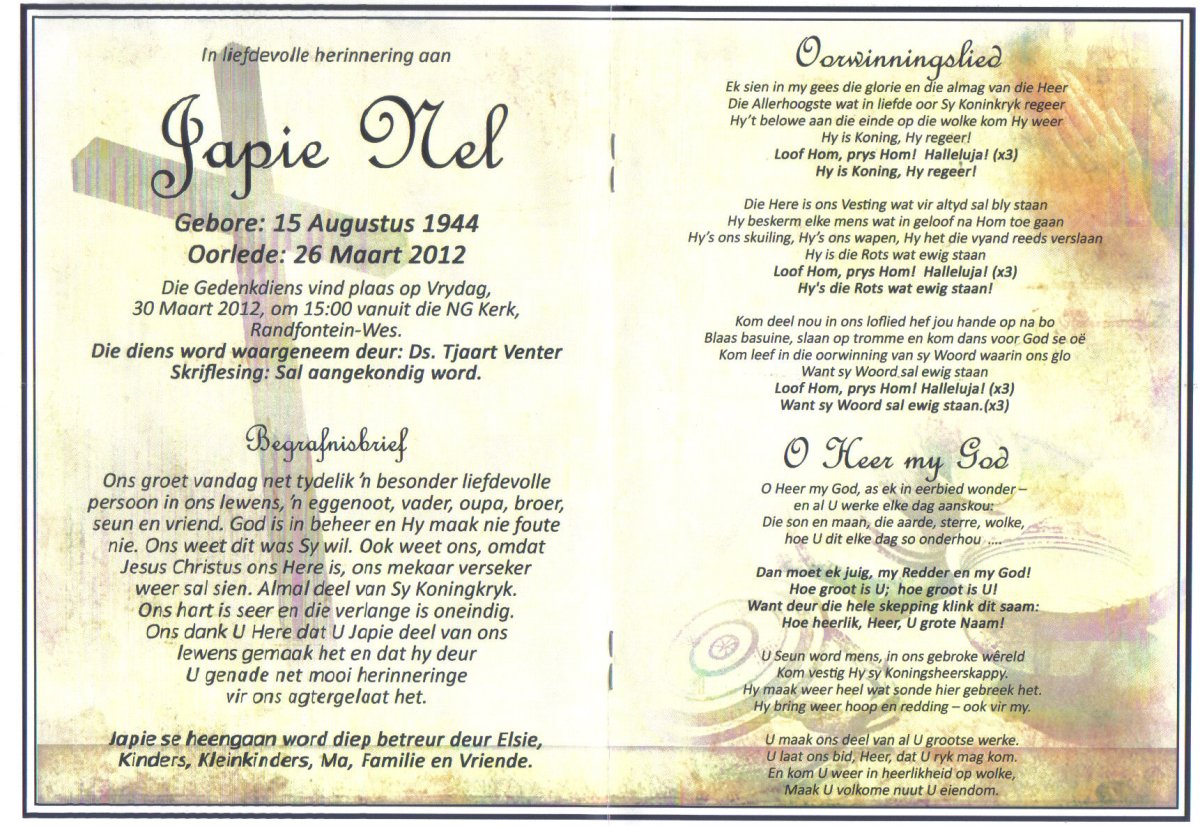 In liefdevolle herinnering aan
Japie Nel
Gebore: 15 Augustus 1944
Oorlede: 26 Maart 2012
Die Gedenkdiens vind plaas op Vrydag,
30 Maart 2012, om 15:00 vanuit die NG Kerk,
Randfontein-Wes.
Die diens word waargeneem deur: Ds. Tjaart Venter
Skriflesing: Sal aangekondig word.
Begrafnisbrief
Ons groet vandag net tydelik 'n besonder liefdevolle
persoon in ons lewens, 'n eggenoot, vader, oupa, broer,
seun en vriend. God is in beheer en Hy maak nie foute
nie. Ons weet dit was Sy wil. Ook weet ons, omdat
Jesus Christus ons Here is, ons mekaar verseker
weer sal sien. Almal deel van Sy Koningkryk.
Ons hart is seer en die verlange is oneindig.
Ons dank U Here dat U Japie deel van ons
lewens gemaak het en dat hy deur
U genade net mooi herinneringe
vir ons agtergelaat het.
Japie se heengaan word diep betreur deur Elsie,
Kinders, Kleinkinders, Ma, Familie en Vriende.
Oorwinningslied
Ek sien in my gees die glorie en die almag van die Heer
Die Allerhoogste wat in liefde oor Sy Koninkryk regeer
Hy't belowe aan die einde op die wolke kom Hy weer
Hy is Koning, Hy regeer!
Loof Hom, prys Hom! Halleluja! (x3)
Hy is Koning, Hy regeer!
Die Here is ons Vesting wat vir altyd sal bly staan
Hy beskerm elke mens wat in geloof na Hom toe gaan
Hy's ons skuiling, Hy's ons wapen, Hy het die vyand reeds verslaan
Hy is die Rots wat ewig staan
Loof Hom, prys Hom! Halleluja! (x3)
Hy's die Rots wat ewig staan!
Kom deel nou in ons loflied hef jou hande op na bo
Blaas basuine, slaan op tromme en kom dans voor God se oë
Kom leef in die oorwinning van sy Woord waarin ons glo
Want sy Woord sal ewig staan
Loof Hom, prys Hom! Halleluja! (x3)
Want sy Woord sal ewig staan.(x3)
O Heer my God
O Heer my God, as ek in eerbied wonder –
en al U werke elke dag aanskou:
Die son en maan, die aarde, sterre, wolke,
hoe U dit elke dag so onderhou ....
Dan moet ek juig, my Redder en my God!
Hoe groot is U; hoe groot is U!
Want deur die hele skepping klink dit saam:
Hoe heerlik, Heer, U grote Naam!
U Seun word mens, in ons gebroke wêreld
Kom vestig Hy sy Koningsheerskappy.
Hy maak weer heel wat sonde hier gebreek het.
Hy bring weer hoop en redding – ook vir my.
U maak ons deel van al U grootse werke.
U laat ons bid, Heer, dat U ryk mag kom.
En kom U weer in heerlikheid op wolke,
Maak U volkome nuut U eiendom.